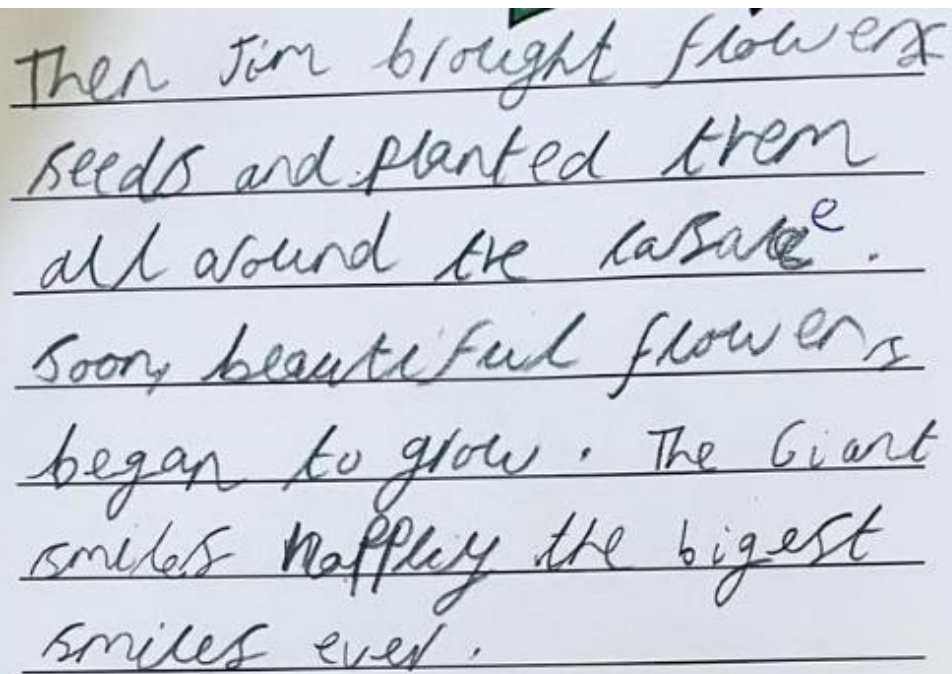 Then Jim brought flowers
seeds and planted them
all around the
Soon, beautiful flowers
began to grow. The Giant
smiles happliy the bigest
smiles ever.